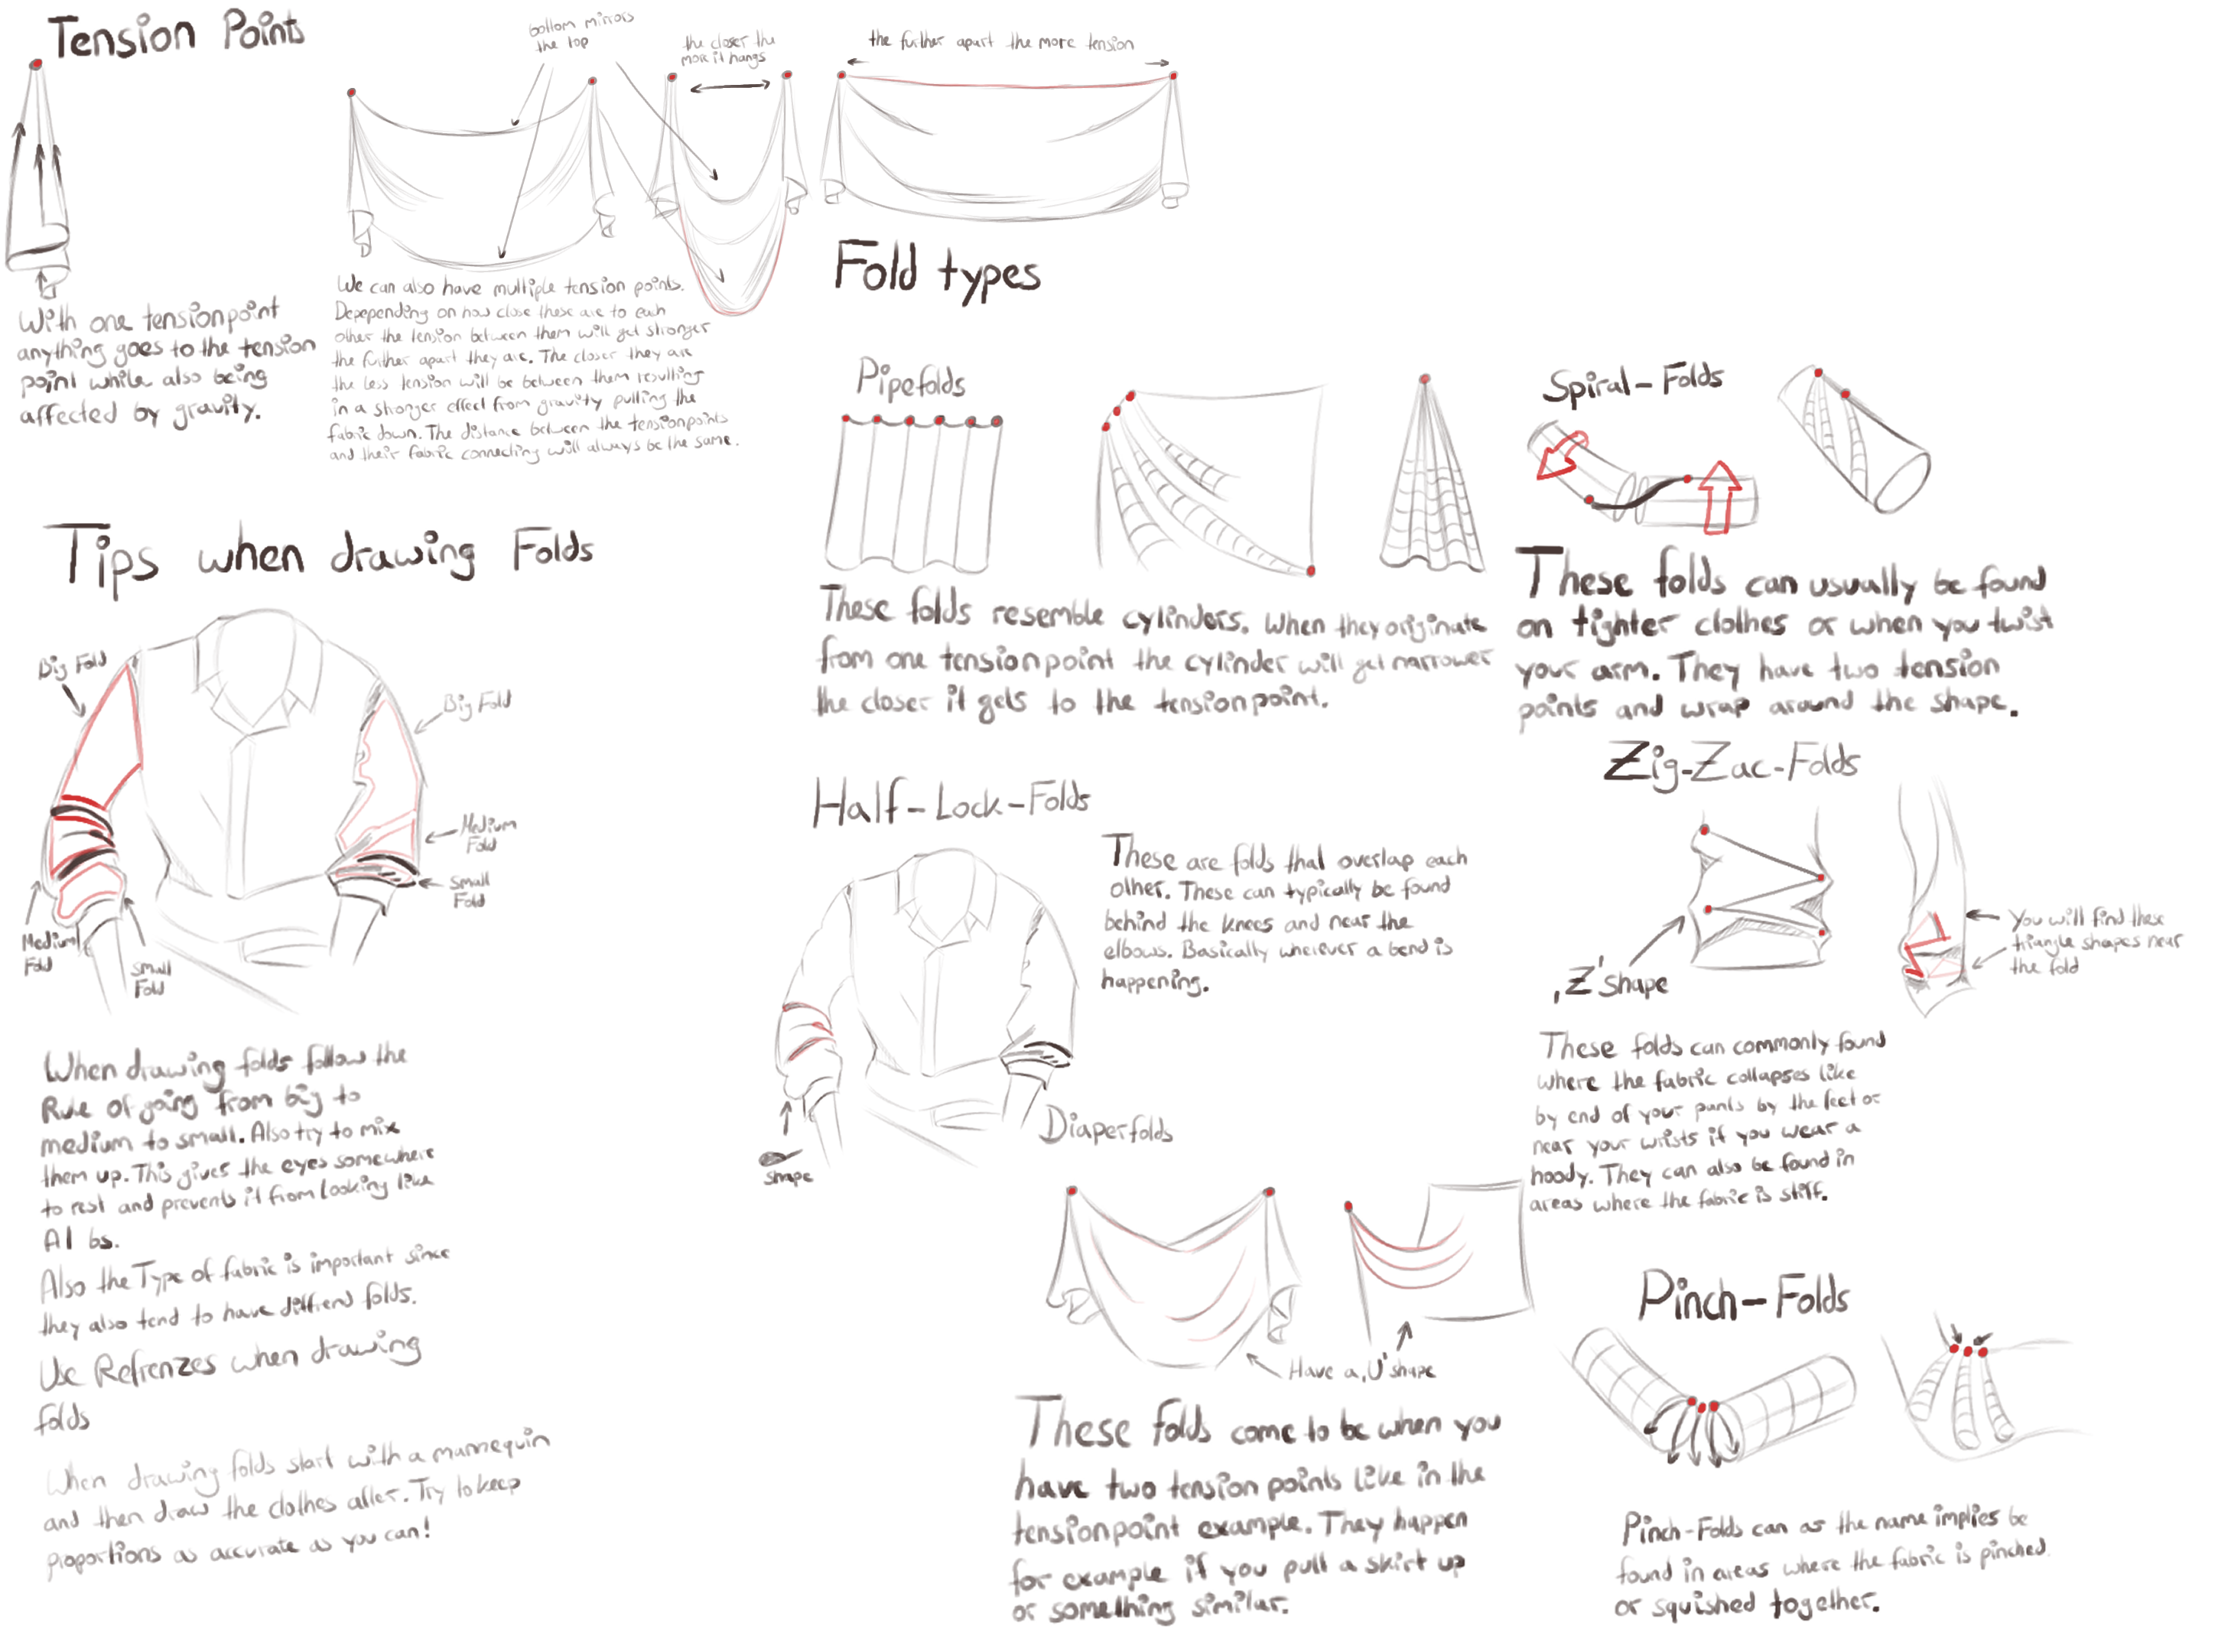 Tension Points
bottom mirrors
the top
the closer the
more it hangs
the further apart the more tension
With one tensionpoint
anything goes to the tension
point while also being
affected by gravity.
We can also have multiple tension points.
Depepending on how close these are to each
other the tension between them will get stronger
the further apart they are. The closer they are
the less tension will be between them resulting
in a stronger effect from gravity pulling the
fabric down. The distance between the tensionpoints
and their fabric connecting will always be the same.
Tips when drawing Folds
Big Fold
Big Fold
Medium
Fold
Small
Fold
Medium
Fold
Small
Fold
When drawing folds follow the
Rule of going from big to
medium to small. Also try to mix
them up. This gives the eyes somewhere
to rest and prevents it from looking like
AI bs.
Also the Type of fabric is important since
they also tend to have diffrend folds.
Use Refrenzes when drawing
folds
When drawing folds start with a mannequin
and then draw the clothes after. Try to keep
proportions as accurate as you can!
Fold types
Pipefolds
These folds resemble cylinders. When they originate
from one tensionpoint the cylinder will get narrower
the closer it gets to the tensionpoint.
Spiral-Folds
These folds can usually be found
on tighter clothes or when you twist
your arm. They have two tension
points and wrap around the shape.
Half-Lock-Folds
These are folds that overlap each
other. These can typically be found
behind the knees and near the
elbows. Basically wherever a bend is
happening.
shape
Zig-Zac-Folds
,Z' shape
You will find these
triangle shapes near
the fold
These folds can commonly found
where the fabric collapses like
by end of your pants by the feet or
near your wrists if you wear a
hoody. They can also be found in
areas where the fabric is stiff.
Diaperfolds
Have a ,U' shape
These folds come to be when you
have two tension points like in the
tensionpoint example. They happen
for example if you pull a skirt up
or something similar.
Pinch-Folds
Pinch-Folds can as the name implies be
found in areas where the fabric is pinched
or squished together.